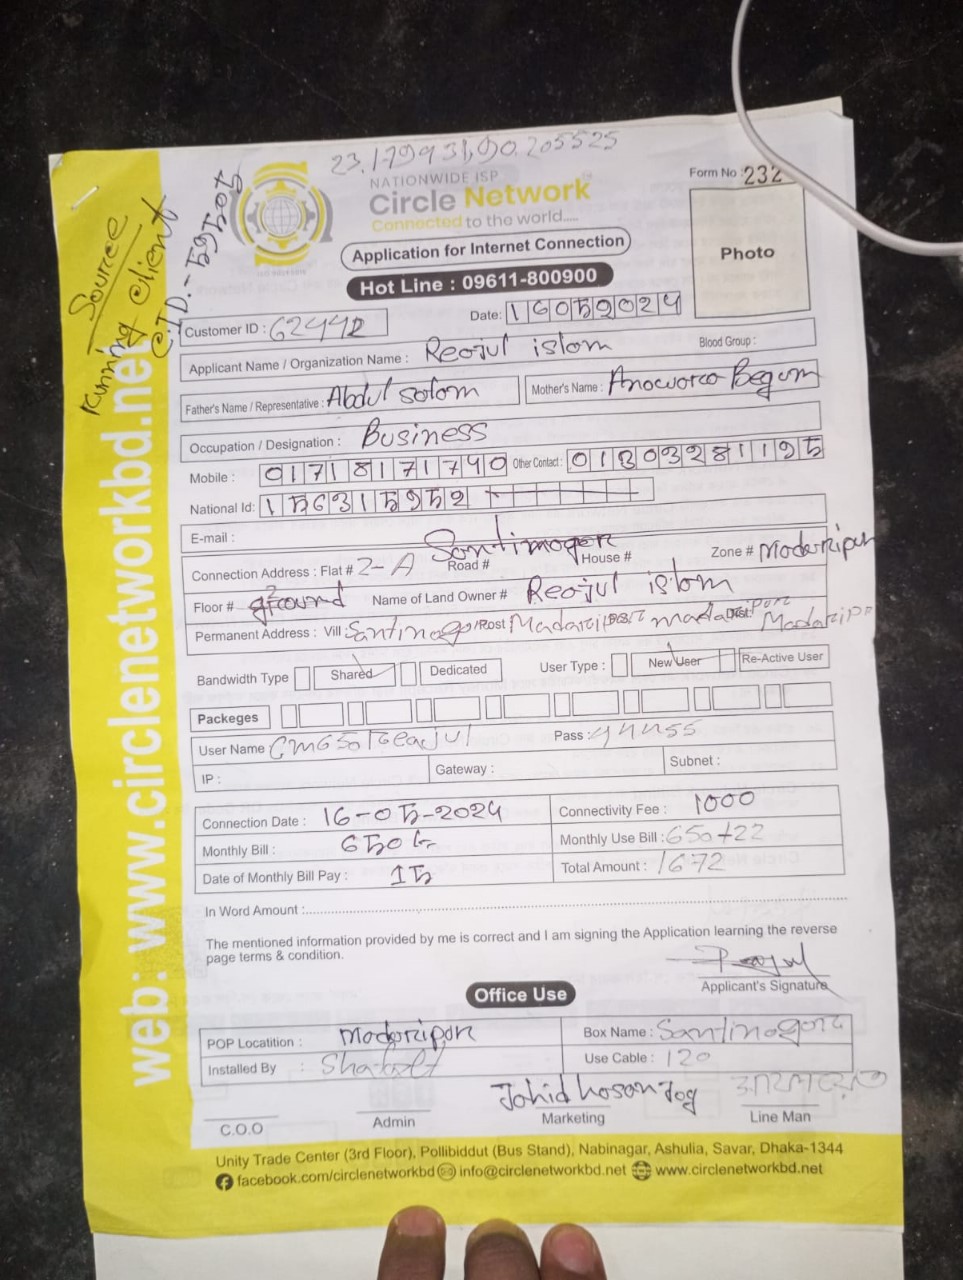 23.179931,90.205525
NATIONWIDE ISP
Circle Network
Connected to the world.....
Form No : 232
Application for Internet Connection
Hot Line : 09611-800900
Photo
Source
Running Client
C.ID.-
web: www.circlenetworkbd.net
Date: 16052024
Customer ID :
Applicant Name / Organization Name : Reajul islam
Blood Group :
Father's Name / Representative : Abdul salam
Mother's Name : Anowara Begum
Occupation / Designation : Business
Mobile : 01718171740 Other Contact : 01303281195
National Id: 1563159592
E-mail :
Connection Address : Flat # 2-A Road # Santinagar House # Zone # Madaripur
Floor # ground Name of Land Owner # Reajul islam
Permanent Address : Vill Santinagar Post Madaripur Dist: Madaripur
Bandwidth Type Shared Dedicated User Type : New User Re-Active User
Packeges
User Name Pass : 44455
IP : Gateway : Subnet :
Connection Date : 16-05-2024 Connectivity Fee : 1000
Monthly Bill : 650 tk Monthly Use Bill : 650+22
Date of Monthly Bill Pay : 15 Total Amount : 1672
In Word Amount :
The mentioned information provided by me is correct and I am signing the Application learning the reverse
page terms & condition.
Applicant's Signature
Office Use
POP Locatition : Madaripur Box Name : Santinagar
Installed By : Use Cable : 120
Jahid hasan
C.O.O Admin Marketing Line Man
Unity Trade Center (3rd Floor), Pollibiddut (Bus Stand), Nabinagar, Ashulia, Savar, Dhaka-1344
facebook.com/circlenetworkbd info@circlenetworkbd.net www.circlenetworkbd.net